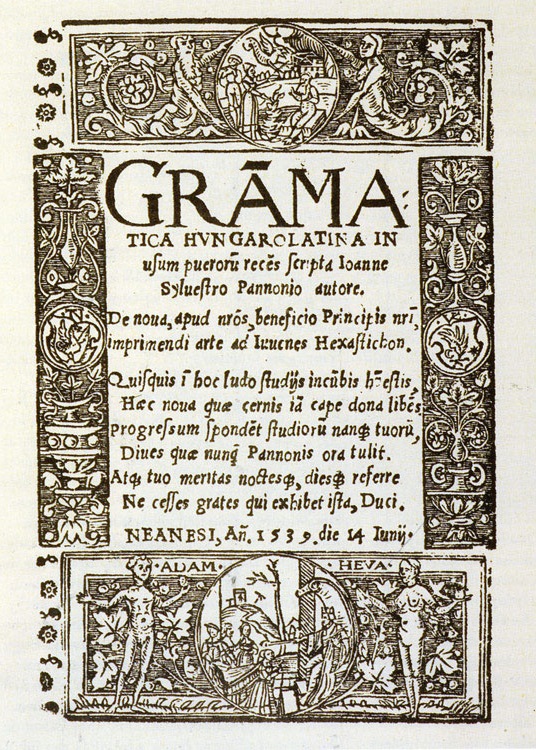 GRĀMA
TICA HVNGAROLATINA IN
uſum puerorū recēs ſcripta Ioanne
Sylueſtro Pannonio autore.
De noua, apud nrōs, beneficio Principis nrī,
imprimendi arte ad Iuuenes Hexaſtichon.
Quiſquis ī hoc ludo ſtudijs incūbis hōeſtis,
Hæc noua quæ cernis iā cape dona libēs,
progreſſum ſpondēt ſtudiorū nanqꝫ tuorū,
Diues quæ nunqꝫ Pannonis ora tulit.
Atqꝫ tuo meritas noctesqꝫ, diesqꝫ referre
Ne ceſſes grates qui exhibet iſta, Duci.
NEANESI, Añ. 1539. die 14 Iunij.
·ADAM· HEVA·